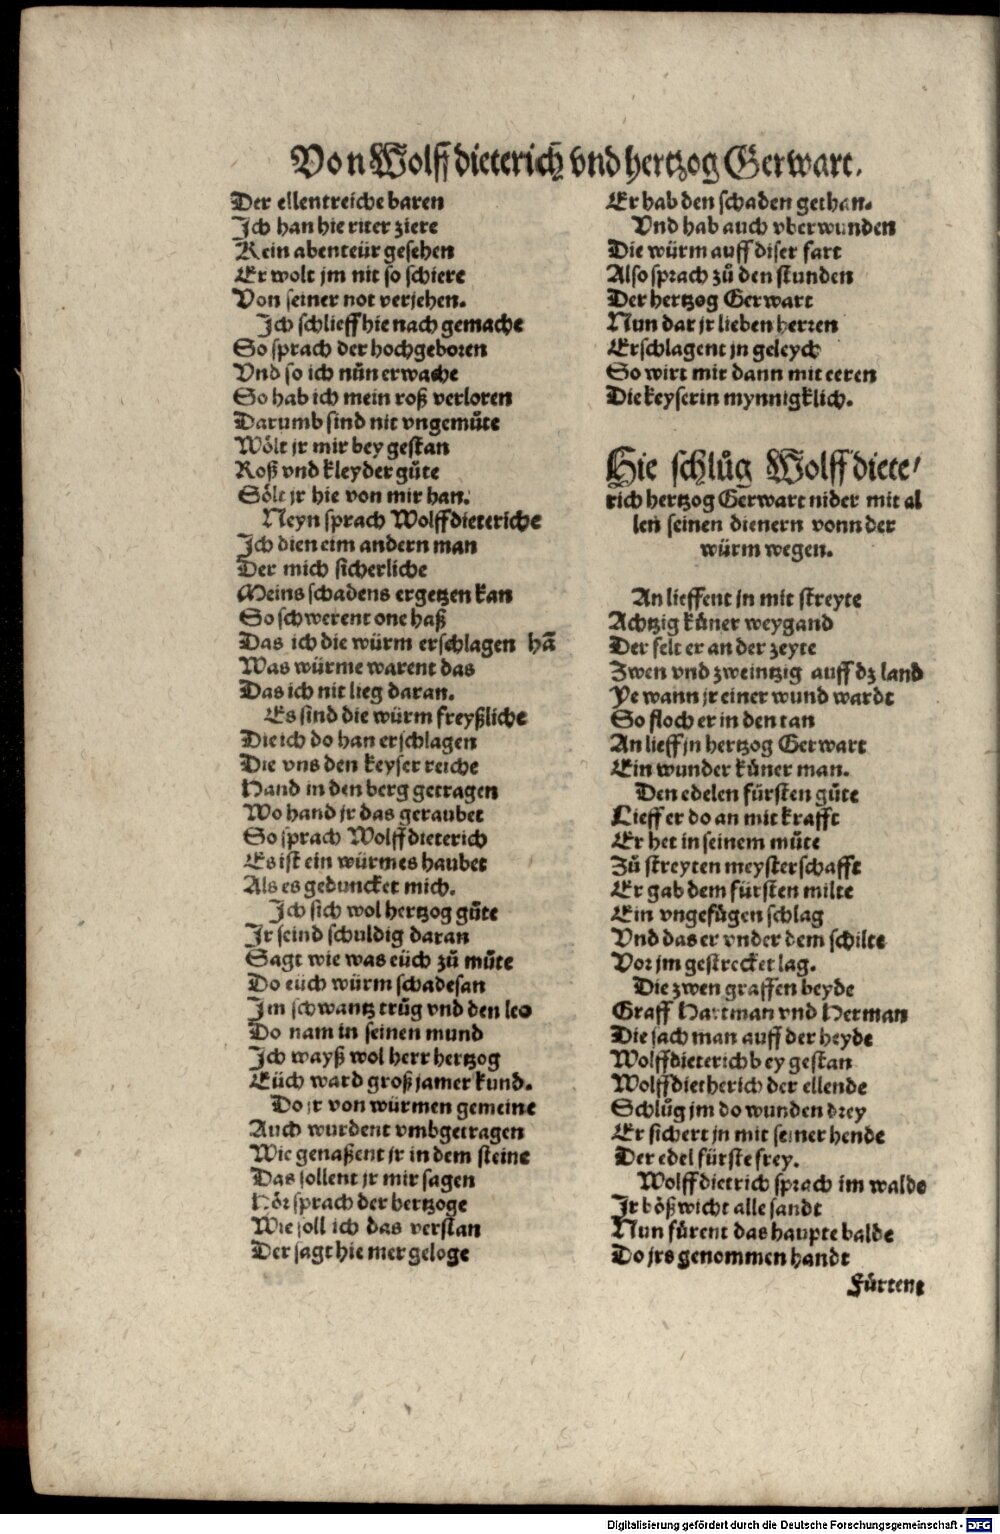 Von Wolffdieterich vnd hertzog Gerwart.
Der ellentreiche baren
Ich han hie riter ziere
Kein abenteür gesehen
Er wolt jm nit so schiere
Von seiner not verjehen.
Ich schlieff hie nach gemache
So sprach der hochgeboren
Vnd so ich nůn erwache
So hab ich mein roß verloren
Darumb sind nit vngemůte
Wölt jr mir bey gestan
Roß vnd kleyder gůte
Sölt jr hie von mir han.
Neyn sprach Wolffdieteriche
Ich dien eim andern man
Der mich sicherliche
Meins schadens ergetzen kan
So schwerent one haß
Das ich die würm erschlagen hã
Was würme warent das
Das ich nit lieg daran.
Es sind die würm freyßliche
Die ich do han erschlagen
Die vns den keyser reiche
Hand in den berg getragen
Wo hand jr das geraubet
So sprach Wolffdieterich
Es ist ein würmes haubet
Als es geduncket mich.
Ich sich wol hertzog gůte
Ir seind schuldig daran
Sagt wie was eüch zů můte
Do eüch würm schadesan
Im schwantz trůg vnd den leo
Do nam in seinen mund
Ich wayß wol herr hertzog
Eüch ward groß jamer kund.
Do jr von würmen gemeine
Auch wurdent vmbgetragen
Wie genaßent jr in dem steine
Das sollent jr mir sagen
Hör sprach der hertzoge
Wie soll ich das verstan
Der sagt hie mer geloge
Er hab den schaden gethan.
Vnd hab auch vberwunden
Die würm auff diser fart
Also sprach zů den stunden
Der hertzog Gerwart
Nun dar jr lieben herren
Erschlagent jn geleych
So wirt mir dann mit eeren
Die keyserin mynnigklich.
Hie schlůg Wolffdiete/
rich hertzog Gerwart nider mit al
len seinen dienern vonn der
würm wegen.
An lieffent jn mit streyte
Achtzig küner weygand
Der felt er an der zeyte
Zwen vnd zweintzig auff dz land
Ye wann jr einer wund wardt
So floch er in den tan
An lieff jn hertzog Gerwart
Ein wunder küner man.
Den edelen fürsten gůte
Lieff er do an mit krafft
Er het in seinem můte
Zů streyten meysterschafft
Er gab dem fürsten milte
Ein vngefügen schlag
Vnd das er vnder dem schilte
Vor jm gestrecket lag.
Die zwen graffen beyde
Graff Hartman vnd Herman
Die sach man auff der heyde
Wolffdieterich bey gestan
Wolffdietherich der ellende
Schlůg jm do wunden drey
Er sichert jn mit seiner hende
Der edel fürste frey.
Wolffdietrich sprach im walde
Ir bößwicht alle sandt
Nun fürent das haupte balde
Do jrs genommen handt
Fürtent
Digitalisierung gefördert durch die Deutsche Forschungsgemeinschaft - DFG